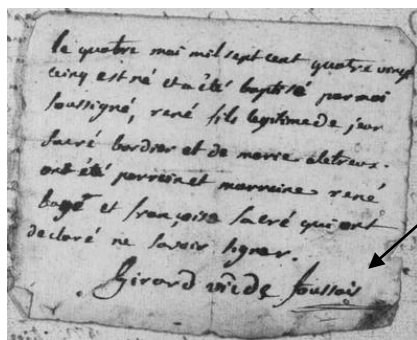 le quatre mai mil sept cent quatre vingt
cinq est né et a été baptisé par moi
soussigné, rené fils legitime de jean
sacré bordier et de marie aletreux.
ont été parrain et marraine rené
bagé et françoise sacré qui ont
declaré ne savoir signer.
Girard vic de soussois